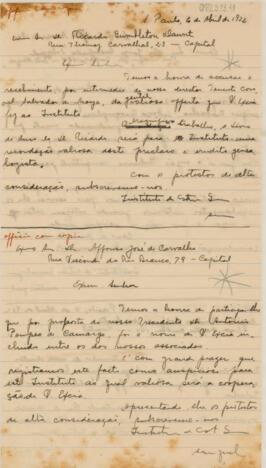 S. Paulo, 6 de Abril de 1936
Exmo Snr. Dr. Ricardo Gumbleton Daunt
Rua Thomaz Carvalhal, 23 - Capital
Temos a honra de accusar o
recebimento, por intermedio de nosso director Tenente Coro-
nel Salvador de Moya, da offerta que V. Excia
fez ao Instituto
trabalho, o Livro
de Ricardo será para o Instituto uma
recordação valiosa deste preclaro e erudito genea
logista.
Com os protestos de alta
consideração, subscrevemo-nos
Instituto de Est. G
officio com copia
Exmo Snr Dr. Affonso José de Carvalho
Rua Visconde do Rio Branco, 79 - Capital
Exmo Senhor
Temos a honra de participar-lhe
que por proposta de nosso Presidente Dr. Antonio
Pompeo de Camargo, foi o nome de V. Excia in-
cluido entre os dos nossos associados.
É com grande prazer que
registramos este facto como auspicioso para
este Instituto ao qual valiosa será a coopera-
ção de V. Excia.
Apresentando-lhe os protestos
de alta consideração, subscrevemo-nos
Instituto de Est G